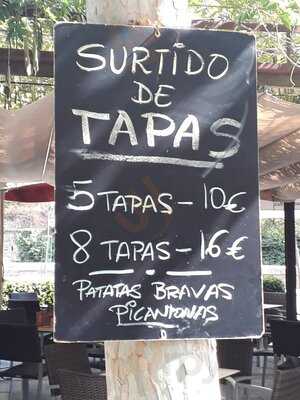 SURTIDO
DE
TAPAS
5 TAPAS - 10€
8 TAPAS - 16€
PATATAS BRAVAS
PICANTONAS